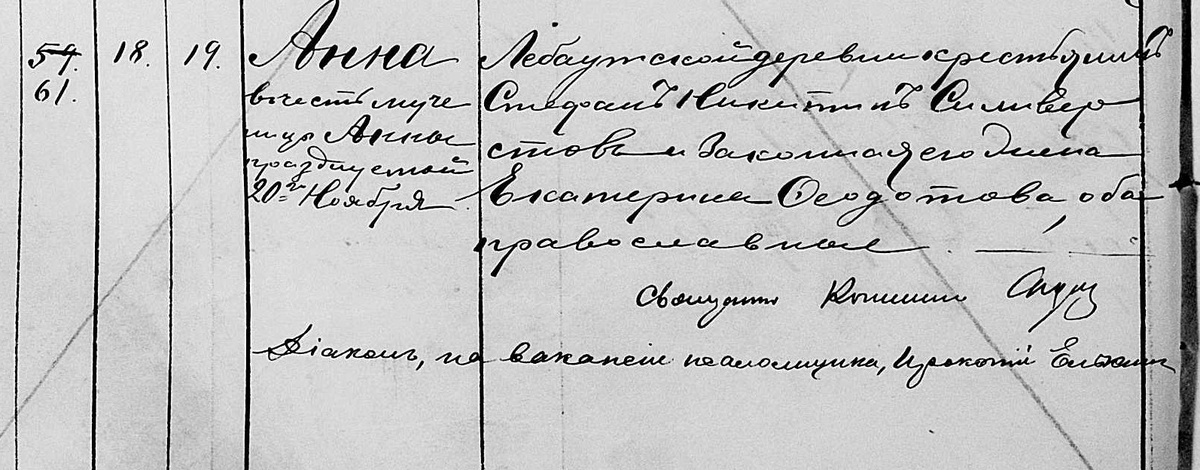 59. 18. 19. Анна Лебаутской деревни крестьянинъ
61. въ честь муче Стефанъ Никитинъ Сильвер
ницы Анны стовъ и законная его жена
празднуемой Екатерина Ѳеодотова, оба
20го Ноября православные
Священникъ
Діаконъ, на вакансіи псаломщика, Прокопій